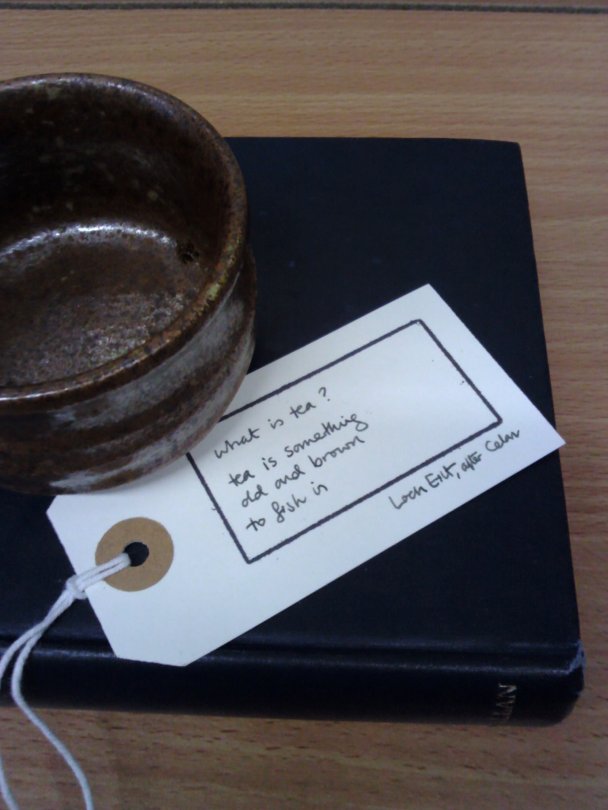 what is tea?
tea is something
old and brown
to fish in
Loch Eilt, after Celan
LLAN